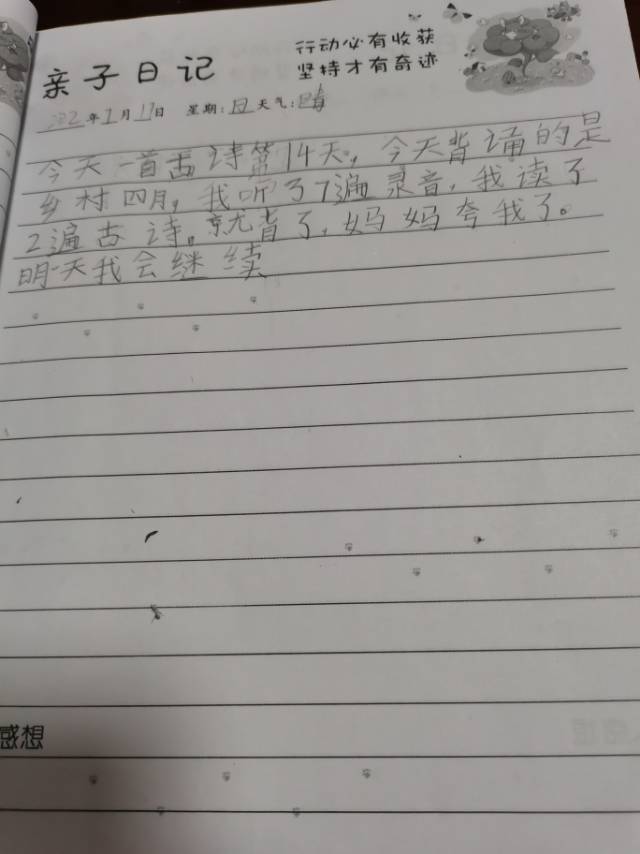 亲子日记
行动必有收获
坚持才有奇迹
年1月17日 星期:日 天气:晴
今天一首古诗第14天，今天背诵的是
乡村四月，我听了7遍录音，我读了
2遍古诗。就背了，妈妈夸我了。
明天我会继续
感想